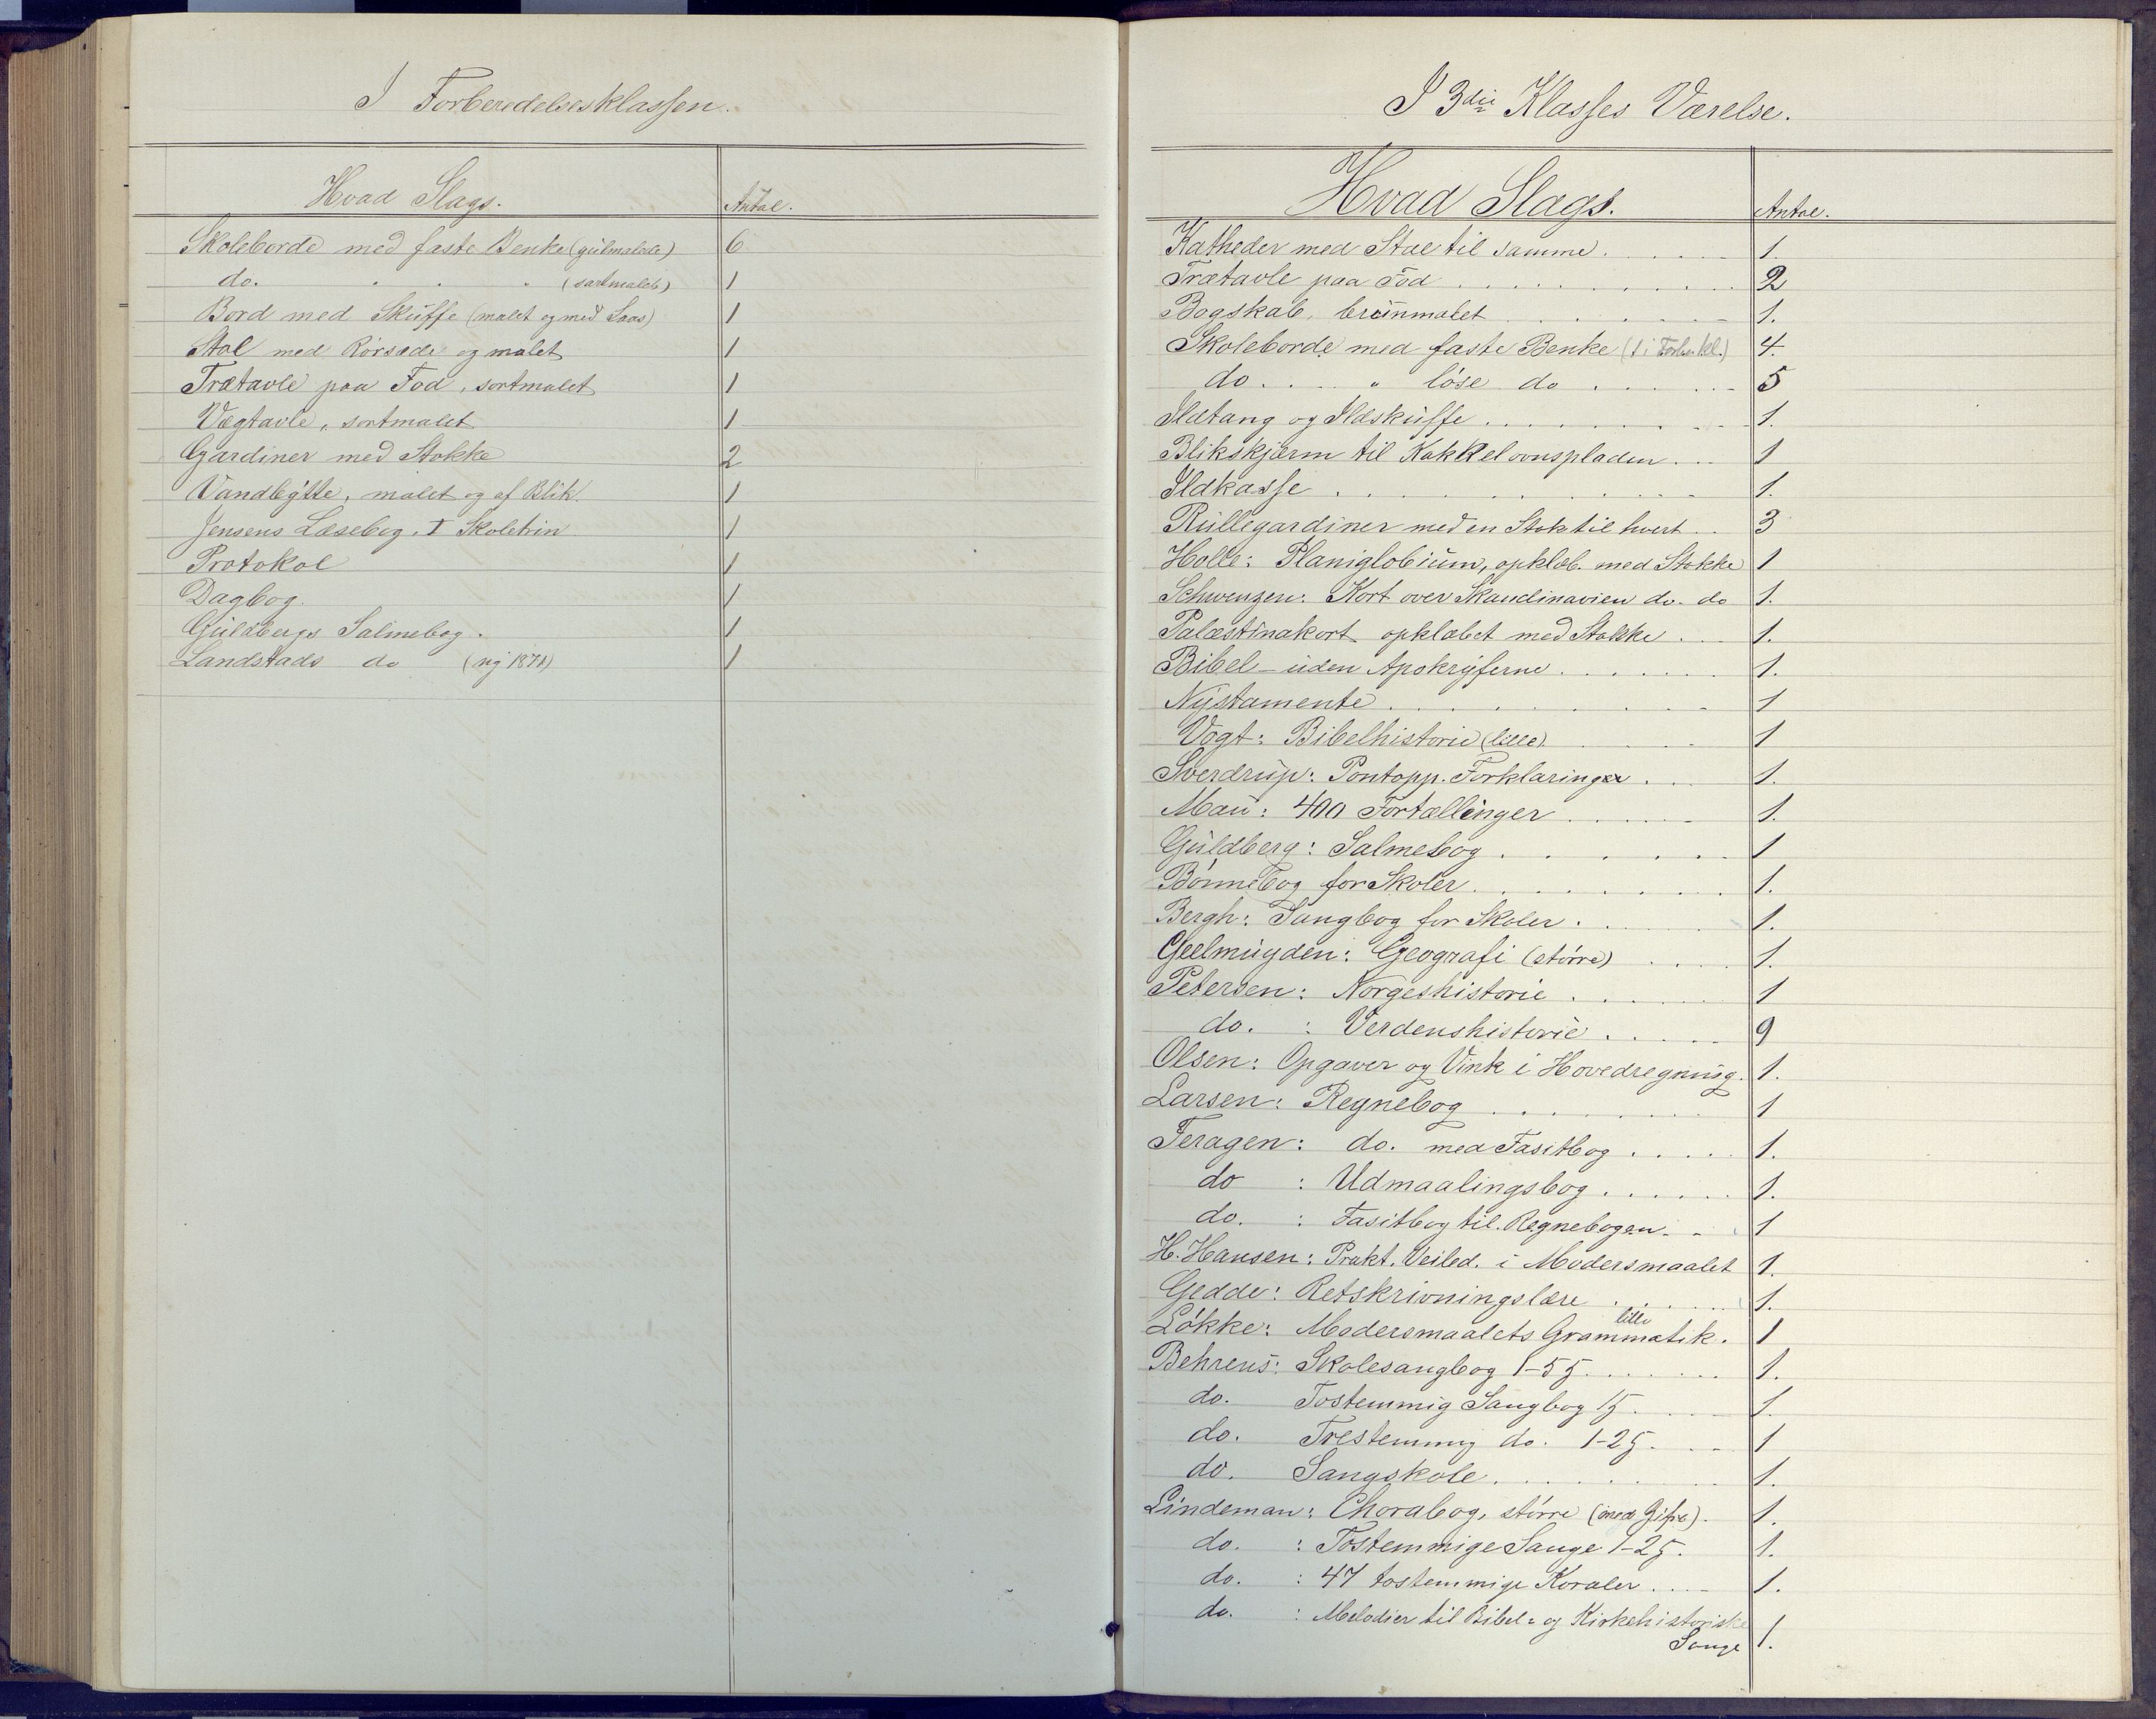 I Forberedelsesklassen.
Hvad Slags. Antal.
Skoleborde med faste Benke (gulmalede) 6
do. " " " (sortmalet) 1
Bord med Skuffe (malet og med Laas) 1
Stol med Rörsæde og malet 1
Trætavle paa Fod, sortmalet 1
Vægtavle, sortmalet 1
Gardiner med Stokke 2
Vandbøtte, malet og af Blik 1
Jensens Læsebog. I Skoletrin 1
Protokol 1
Dagbog. 1
Guldbergs Salmebog. 1
Landstads do (ny 1871) 1
I 3die Klasses Værelse.
Hvad Slags. Antal.
Katheder med Stol til samme. 1.
Trætavle paa Fod 2
Bogskab, brunmalet 1.
Skoleborde med faste Benke (1 i Forb. kl.) 4.
do. " löse do 5
Ildtang og Ildskuffe 1.
Blikskjærm til Kakkelovnspladen 1
Ildkasse 1.
Rullegardiner med en Stok til hvert 3
Holle: Planiglobium, opkleb. med Stokke 1
Schwenzen: Kort over Skandinavien do. do 1.
Palæstinakort opklæbet med Stokke 1.
Bibel uden Apokryferne 1.
Nytstamente 1
Vogt: Bibelhistorie (lille) 1
Sverdrup: Pontopp. Forklaringer 1.
Mau: 400 Fortællinger 1.
Guldberg: Salmebog 1
Bönnebog for Skoler 1.
Bergh: Sangbog for Skoler. 1.
Geelmuyden: Geografi (större) 1.
Petersen: Norgeshistorie 1
do. : Verdenshistorie 9
Olsen: Opgaver og Vink i Hovedregning. 1.
Larsen: Regnebog 1
Feragen: do. med Fasitbog 1.
do : Udmaalingsbog 1.
do. : Fasitbog til Regnebogen 1
H. Hansen: Prakt. Veiled. i Modersmaalet 1.
Gedde: Retskrivningslære 1.
Lökke: Modersmaalets lille Grammatik. 1
Behrens: Skolesangbog 1-55 1.
do. Tostemmig Sangbog 15 1.
do. Trestemmig do. 1-25 1
do. Sangskole 1.
Lindeman: Choralbog, större (med Zifre). 1.
do. : Tostemmige Sange 1-25. 1.
do. : 47 tostemmige Koraler 1.
do. : Melodier til Bibel= og Kirkehistoriske
Sange 1.